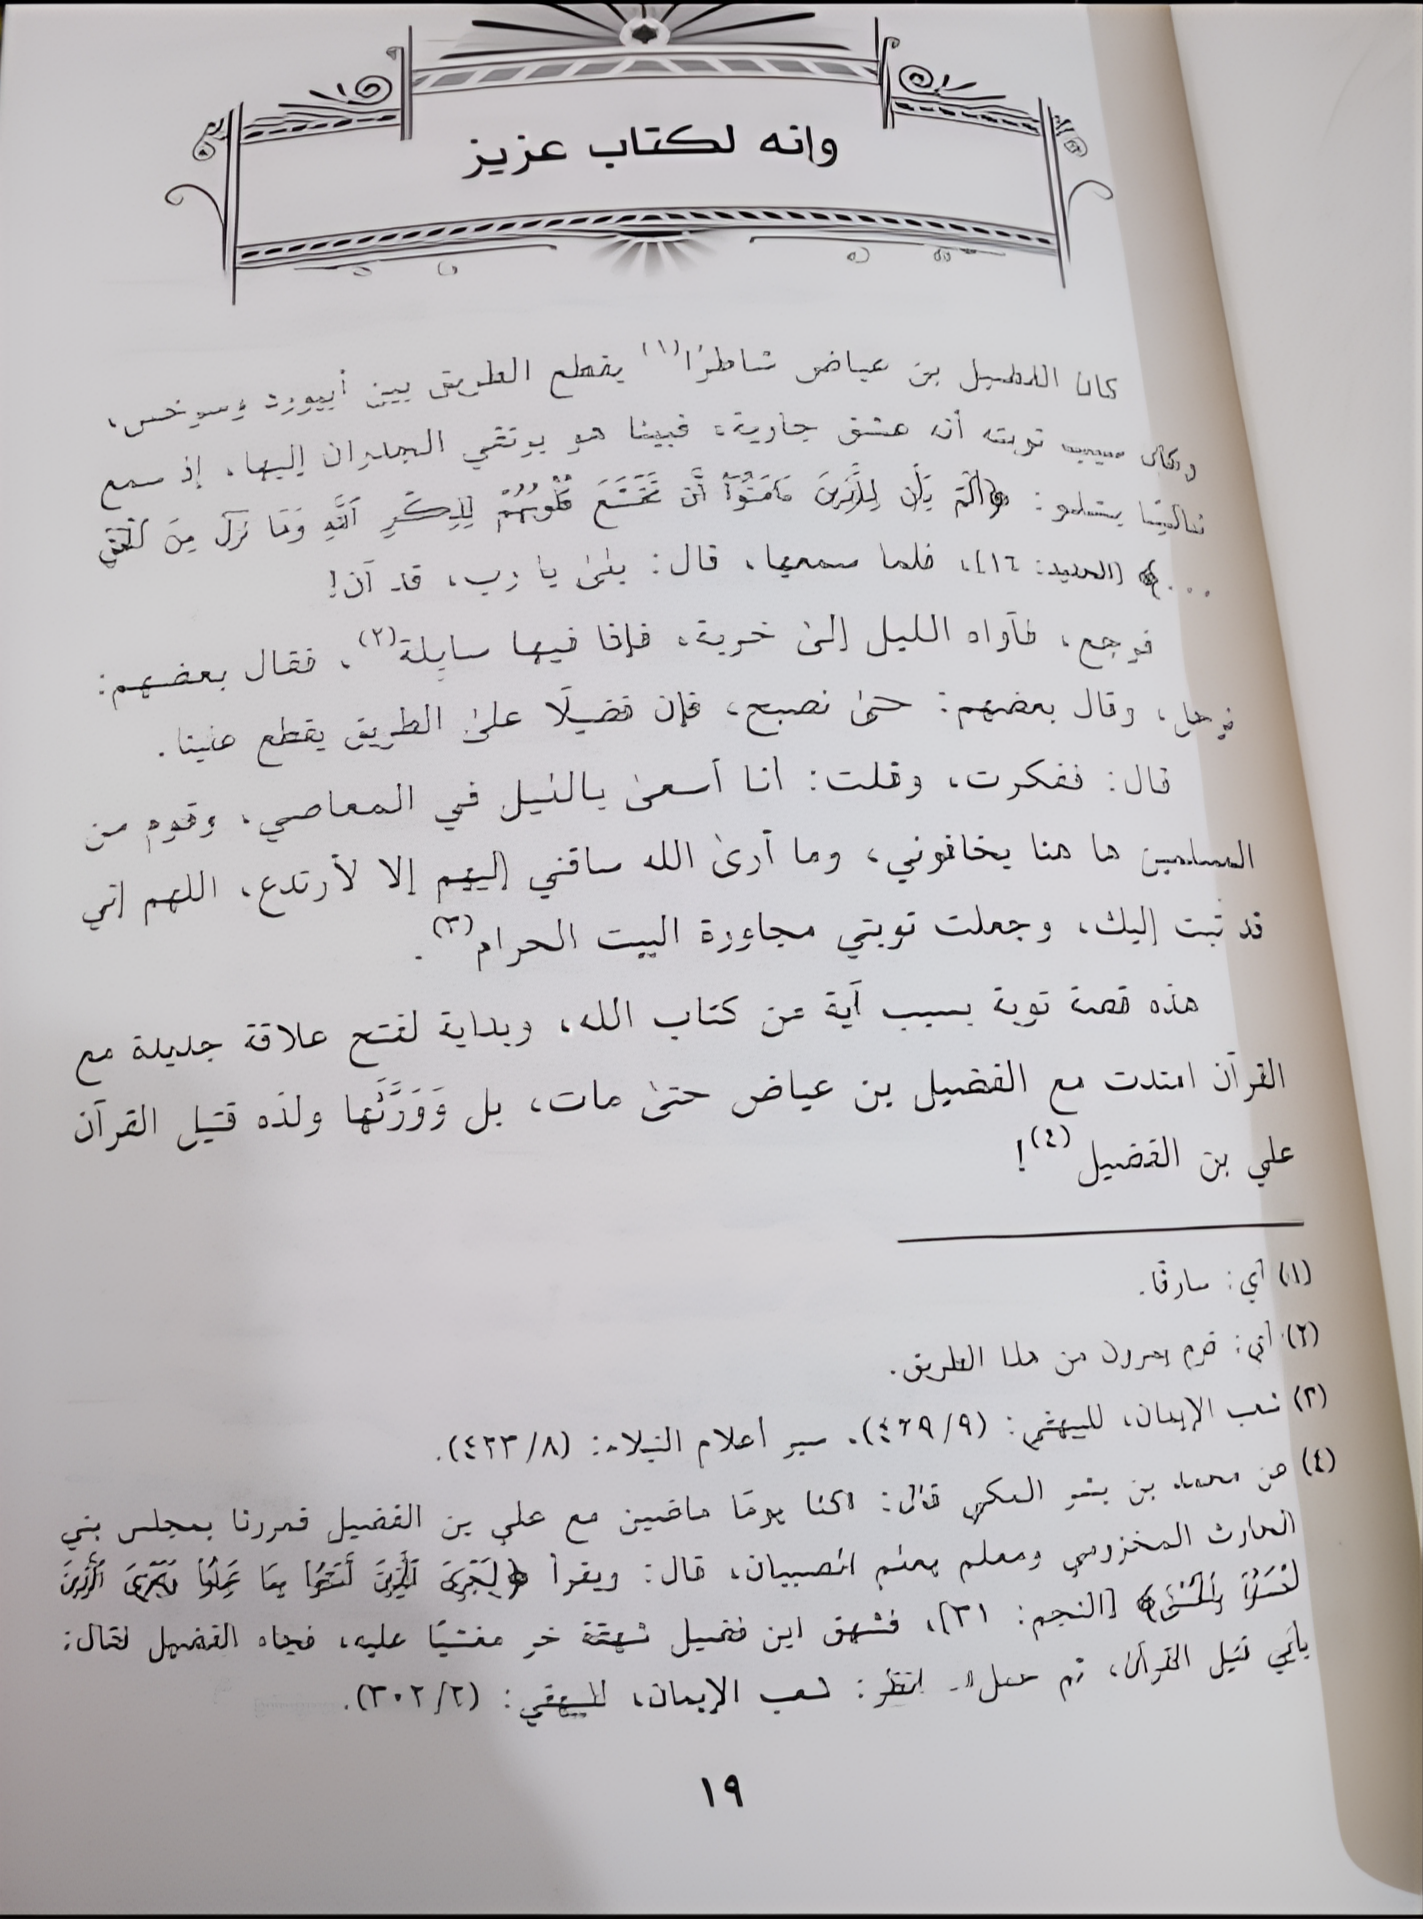 وإنه لكتاب عزيز
كان الفضيل بن عياض شاطرًا(١) يقطع الطريق بين أبيورد وسرخس،
وكان سبب توبته أنه عشق جارية، فبينا هو يرتقي الجدران إليها، إذ سمع
تاليًا يتلو: ﴿أَلَمْ يَأْنِ لِلَّذِينَ ءَامَنُوٓا۟ أَن تَخْشَعَ قُلُوبُهُمْ لِذِكْرِ ٱللَّهِ وَمَا نَزَلَ مِنَ ٱلْحَقِّ
...﴾ [الحديد: ١٦]، فلما سمعها، قال: بلىٰ يا رب، قد آن!
فرجع، فآواه الليل إلىٰ خربة، فإذا فيها سابلة(٢)، فقال بعضهم:
نرحل، وقال بعضهم: حتىٰ نصبح، فإن فضيلًا علىٰ الطريق يقطع علينا.
قال: ففكرت، وقلت: أنا أسعىٰ بالليل في المعاصي، وقوم من
المسلمين ها هنا يخافوني، وما أرىٰ الله ساقني إليهم إلا لأرتدع، اللهم إني
قد تبت إليك، وجعلت توبتي مجاورة البيت الحرام(٣).
هذه قصة توبة بسبب آية من كتاب الله، وبداية لفتح علاقة جديدة مع
القرآن امتدت مع الفضيل بن عياض حتىٰ مات، بل وَوَرَّثَها ولده قتيل القرآن
علي بن الفضيل(٤)!
(١) أي: سارقًا.
(٢) أي: قوم يمرون من هذا الطريق.
(٣) شعب الإيمان، للبيهقي: (٤٢٩/٩)، سير أعلام النبلاء: (٤٢٣/٨).
(٤) عن محمد بن بشر المكي قال: «كنا يومًا ماضين مع علي بن الفضيل فمررنا بمجلس بني
الحارث المخزومي ومعلم يعلم الصبيان، قال: ويقرأ ﴿لِيَجْزِىَ ٱلَّذِينَ أَسَٰٓـُٔوا۟ بِمَا عَمِلُوا۟ وَيَجْزِىَ ٱلَّذِينَ
أَحْسَنُوا۟ بِٱلْحُسْنَى﴾ [النجم: ٣١]، فشهق ابن فضيل شهقة خر مغشيًا عليه، فجاء الفضيل فقال:
بأبي قتيل القرآن، ثم حمل». انظر: شعب الإيمان، للبيهقي: (٣٠٢/٢).
١٩